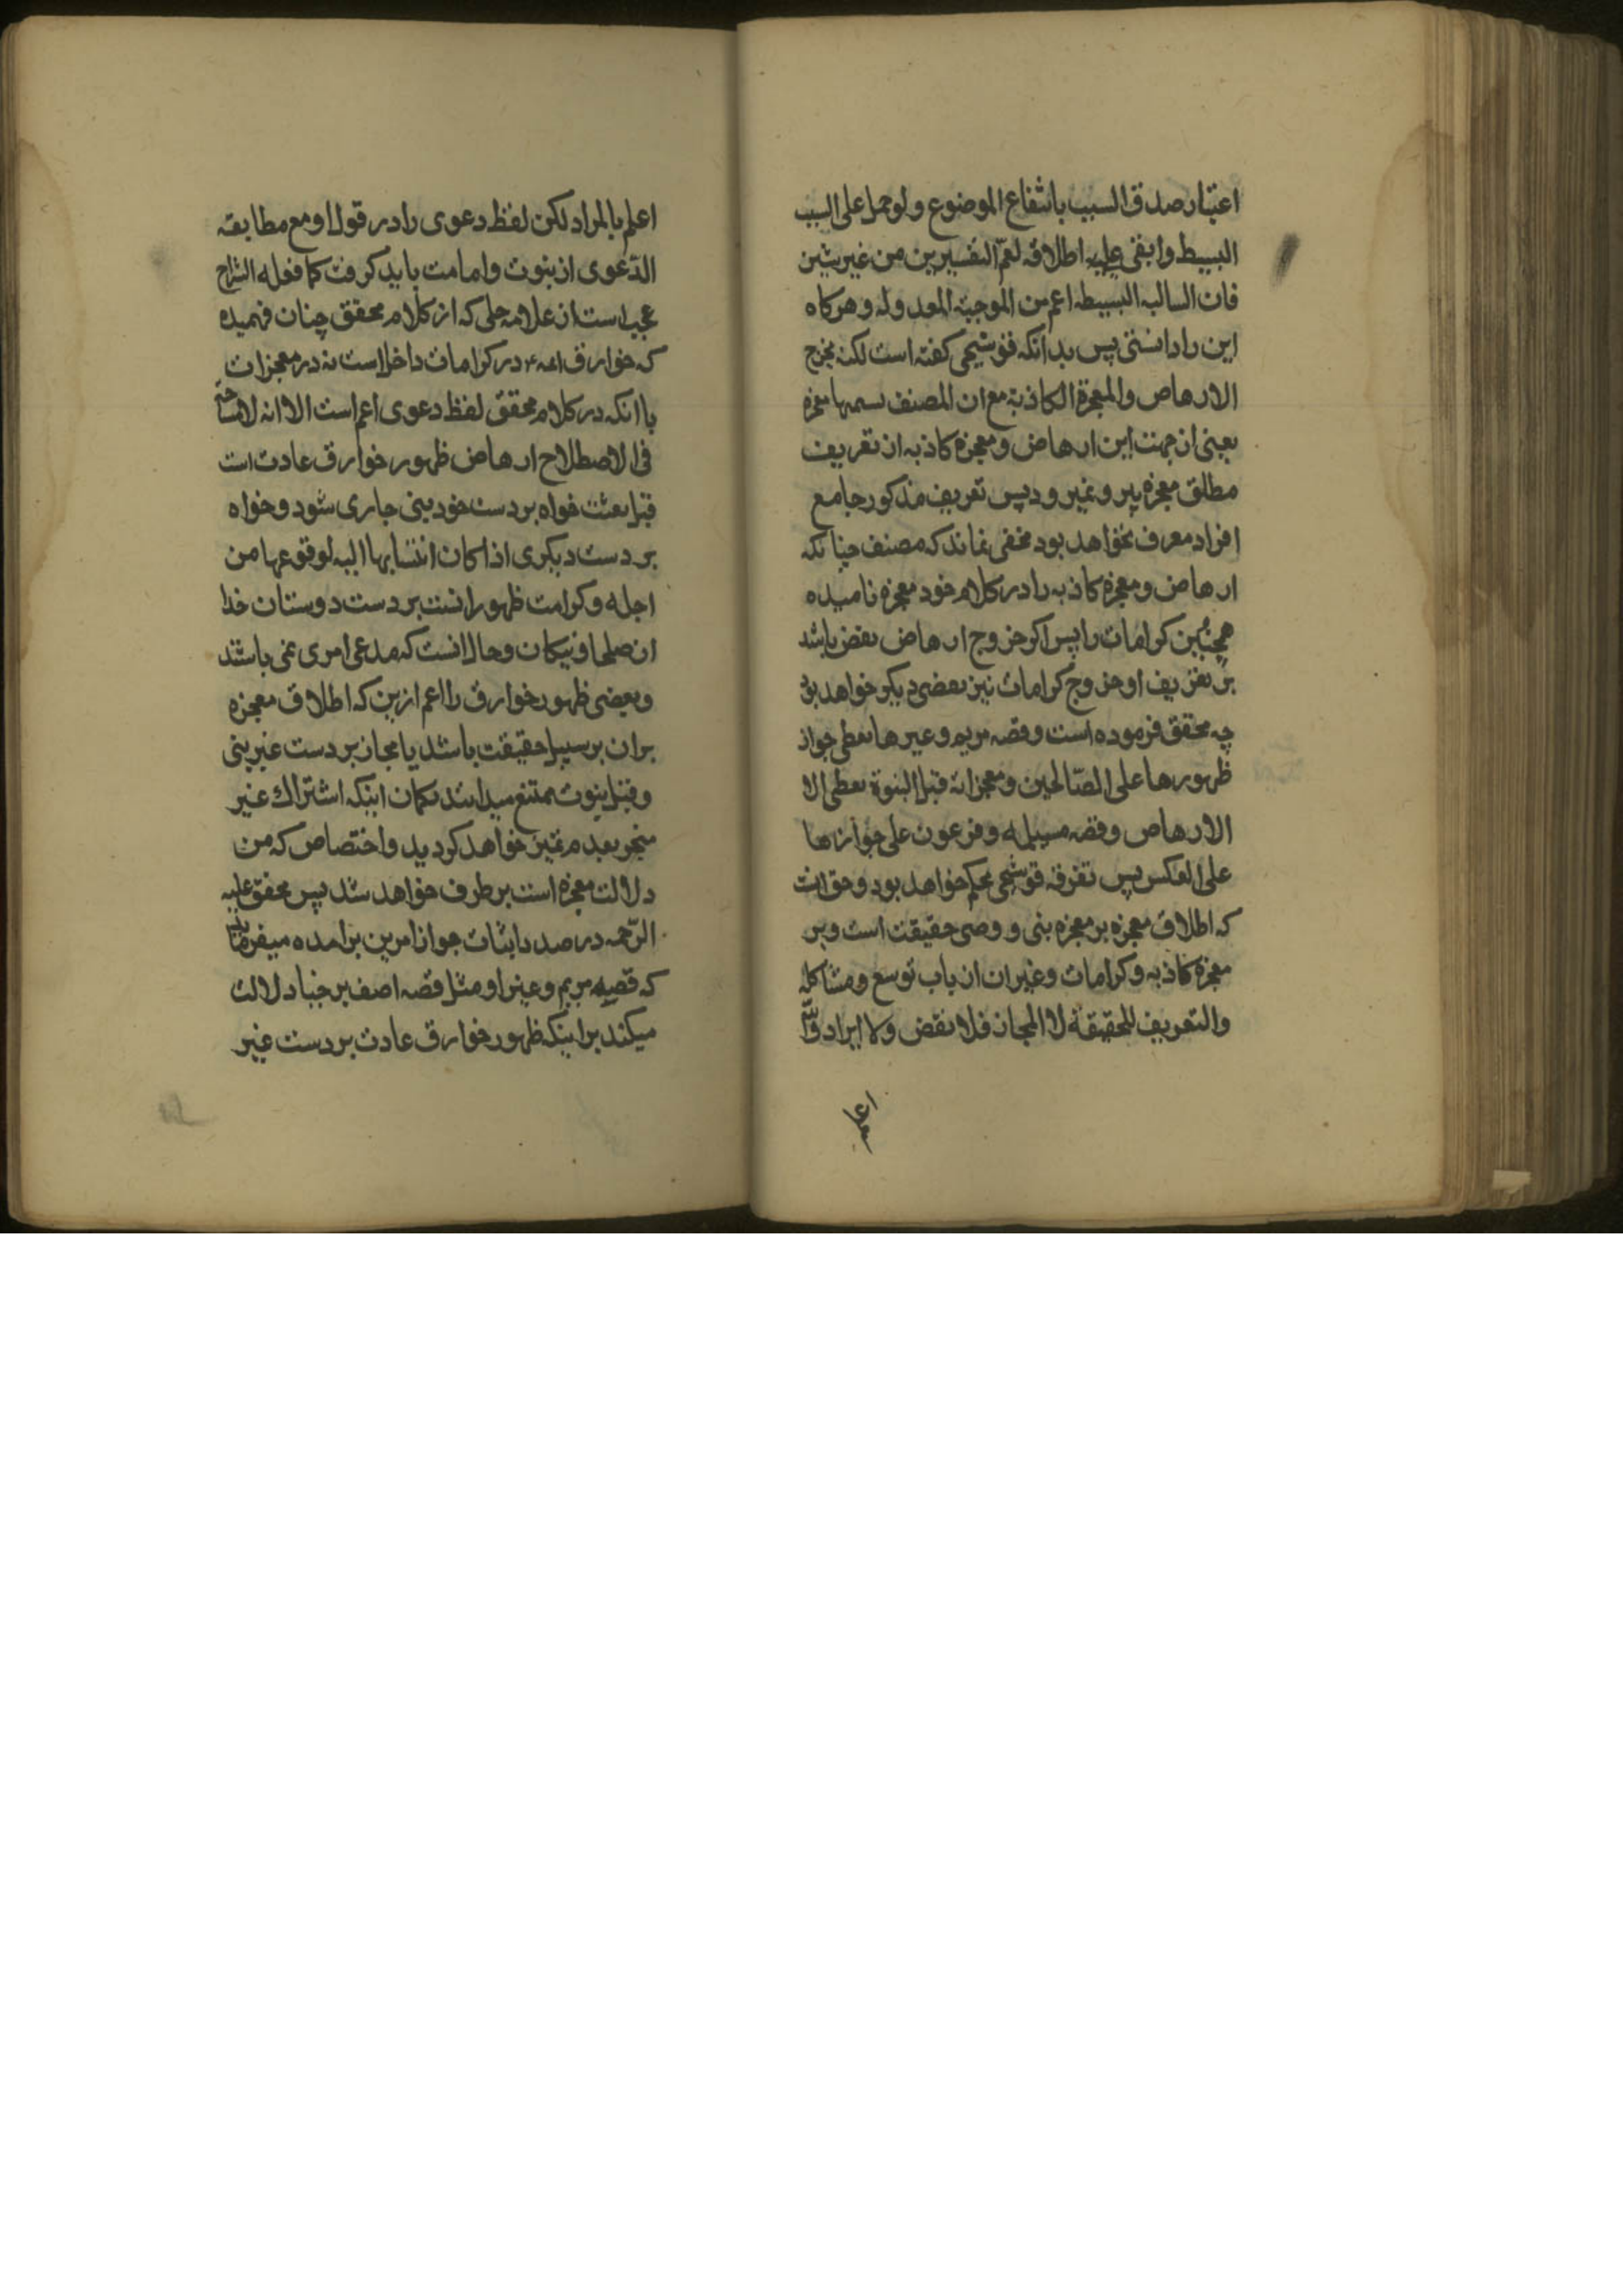 اعتبار صدق السبب بانتفاع الموضوع ولو حمل علی السبب
البسیط وابقی علیه اطلاقه لعمّ التفسیرین من غیر شین
فان السالبه البسیطه اعم من الموجبة المعدوله و هرکاه
این را دانستی پس بدانکه قوشیحی کفته است لکنه یخرج
الارهاص والمعجزة الکاذبة مع ان المصنف سمیها معجزه
یعنی از جهت این ارهاص و معجزه کاذبه از تعریف
مطلق معجزه بیرون میرود پس تعریف مذکور جامع
افراد معرف نخواهد بود مخفی نماند که مصنف چنانکه
ارهاص و معجزه کاذبه را در کلام خود معجزه نامیده
همچنین کرامات را پس اکر خروج ارهاص نقض باشد
بر تعریف او خروج کرامات نیز نقضی دیکر خواهد بود
چه محقق فرموده است وقصه مریم وغیرها تعطی جواز
ظهورها علی الصّالحین ومعجزاته قبل النبوة تعطی الا
الارهاص وقصه مسیلمه وفرعون علی جوازها
علی العکس پس تفرقه قوشچی تحکم خواهد بود و حق انست
که اطلاق معجزه بر معجزه نبی و وصی حقیقت است و بر
معجزه کاذبه و کرامات و غیر ان از باب توسع و مشاکله
والتعریف للحقیقة لا المجاز فلا نقض ولا ایراد والله
اعلم بالمراد لکن لفظ دعوی را در قول او مع مطابقه
الدّعوی از نبوت وامامت باید کرفت کما فعله الشراح
عجب است از علامه حلی که از کلام محقق چنان فهمیده
که خوارق ائمه ع در کرامات داخل است نه در معجزات
با انکه در کلام محقق لفظ دعوی اعم است الا انه لا مشاحة
فی الاصطلاح ارهاص ظهور خوارق عادت است
قبل بعثت خواه بر دست خود نبی جاری شود و خواه
بر دست دیکری اذا کان انتسابها الیه لوقوعها من
اجله و کرامت ظهور انست بر دست دوستان خدا
از صلحا و نیکان و حال انست که مدعی امری نمی باشند
و بعضی ظهور خوارق را اعم ازین که اطلاق معجزه
بران بر سبیل حقیقت باشد یا مجاز بر دست غیر نبی
و قبل نبوت ممتنع میدانند بکمان اینکه اشتراک غیر
منجر بعدم تمیز خواهد کردید و اختصاص که من
دلالت معجزه است بر طرف خواهد شد پس محقق علیه
الرّحمه در صدد اثبات جواز امرین برامده میفرماید
که قصه مریم و غیر او مثل قصه اصف برخیا دلالت
میکند بر اینکه ظهور خوارق عادت بر دست غیر